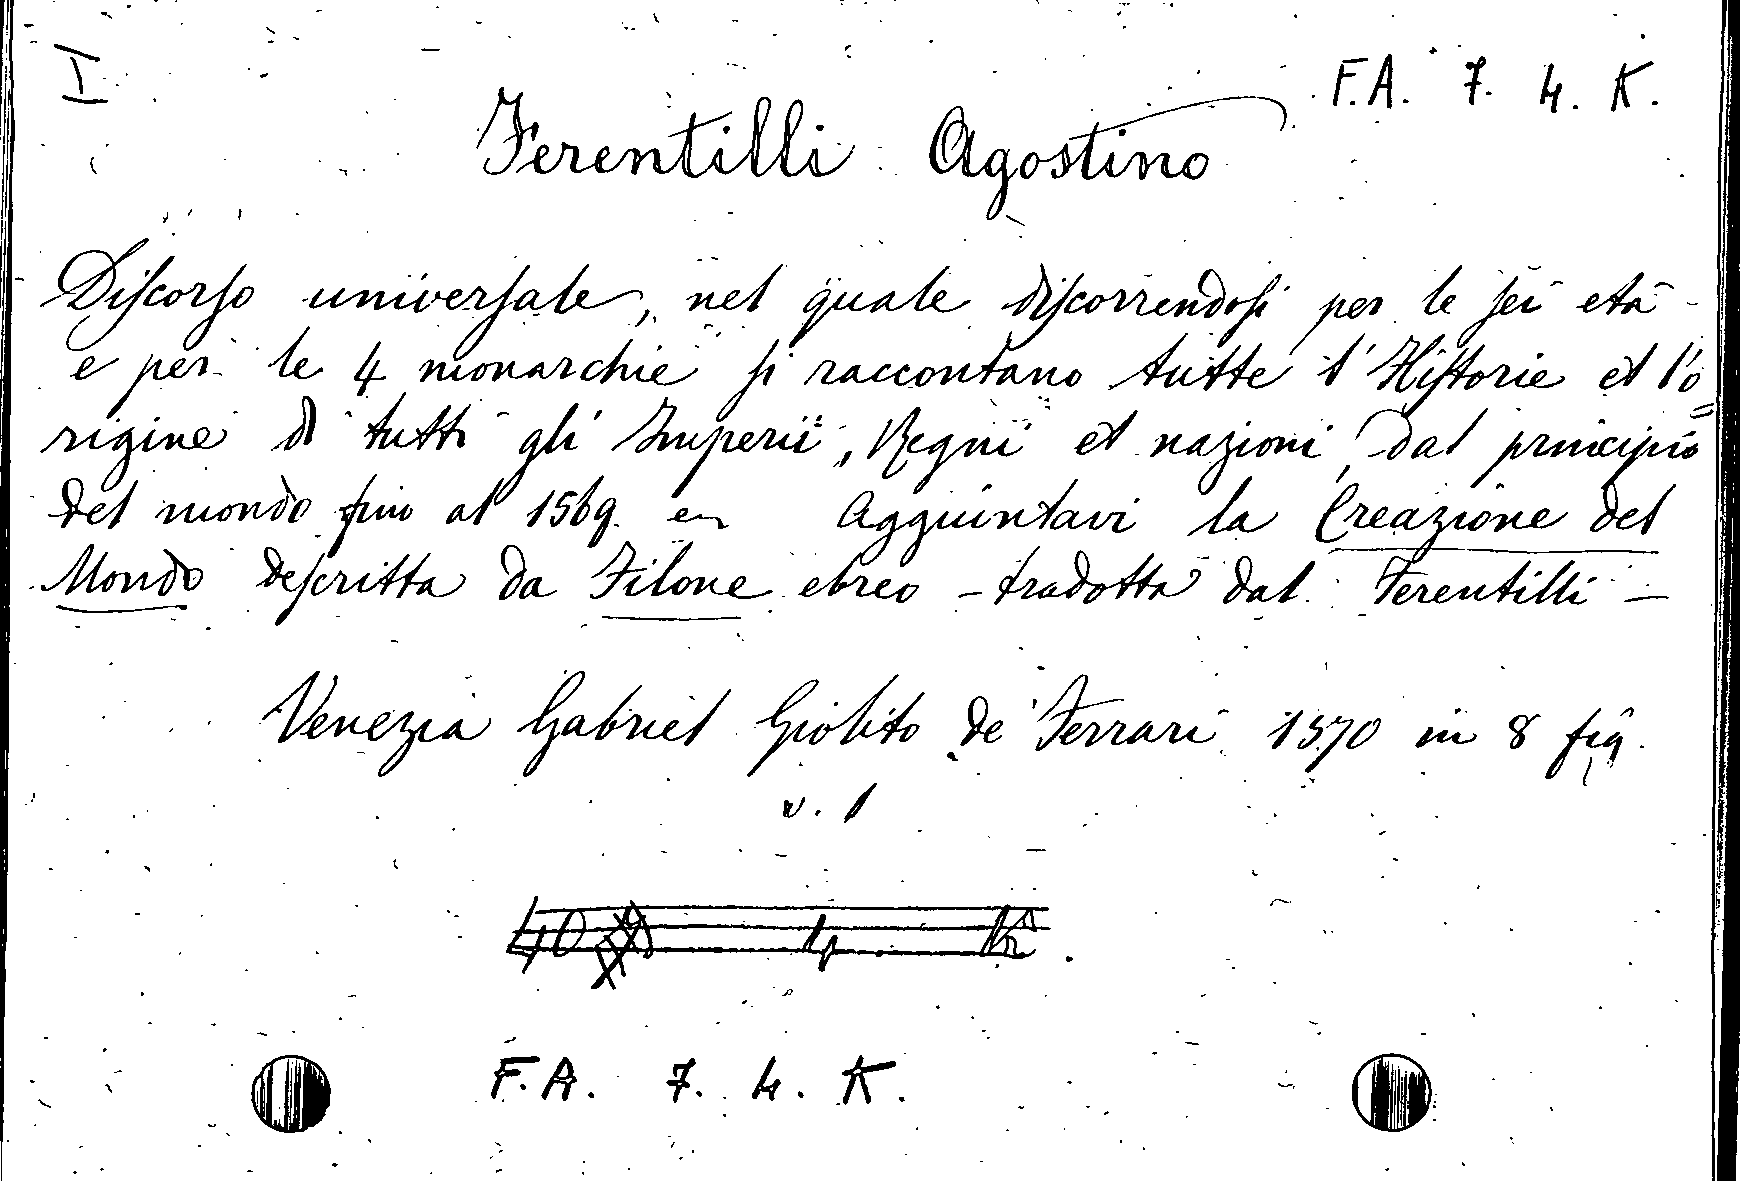 I
F.A. 7. 4. K.
Ferentilli Agostino
Discorso universale, nel quale discorrendosi per le sei età
e per le 4 monarchie si raccontano tutte l'Historie et l'o=
rigine di tutti gli Imperii, Regni et nazioni, dal principio
del mondo fino al 1569. Aggiuntavi la Creazione del
Mondo descritta da Filone ebreo - tradotta dal Ferentilli -
Venezia Gabriel Giolito de' Ferrari 1570 in 8 fig.
v. 1
40 4 K
F.A. 7. 4. K.